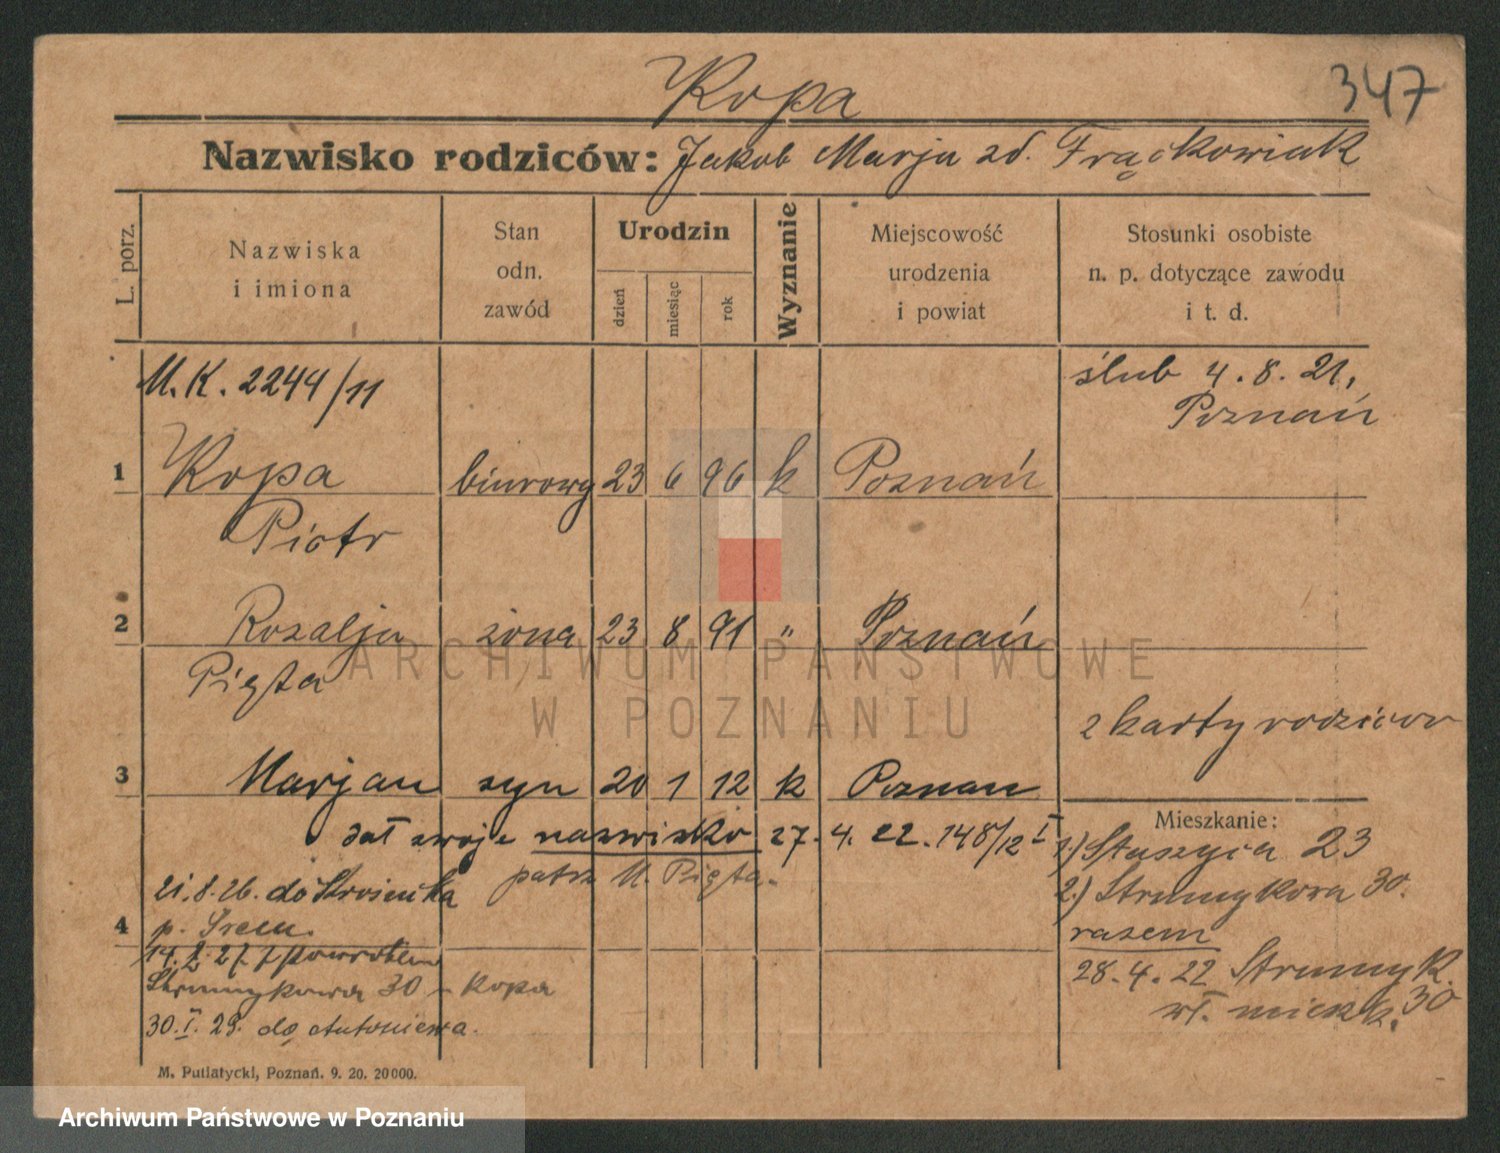 Kopa
347
Nazwisko rodziców: Jakob Marja zd. Frąckowiak
L. porz.
Nazwiska
i imiona
Stan
odn.
zawód
Urodzin
dzień
miesiąc
rok
Wyznanie
Miejscowość
urodzenia
i powiat
Stosunki osobiste
n. p. dotyczące zawodu
i t. d.
M.K. 2244/11
ślub 4.8.21,
Poznań
1 Kopa biurowy 23 6 96 k Poznań
Piotr
2 Rozalja żona 23 8 91 " Poznań
Pięta
z karty rodziców
3 Marjan syn 20 1 12 k Poznan
dał swoje nazwisko 27. 4. 22. 148/12 I
patrz M. Pięta.
Mieszkanie:
1.) Staszyca 23
2.) Strumykowa 30.
razem
28.4.22 Strumyk.
wł. mieszk. 30
21.8.26. do
4 p. Śrem.
14. 2. 27 z powrotem
Strumykowa 30 - Kopa
30.I.29. do Antoniewa.
M. Putiatycki, Poznań. 9. 20. 20000.
ARCHIWUM PAŃSTWOWE
W POZNANIU
Archiwum Państwowe w Poznaniu